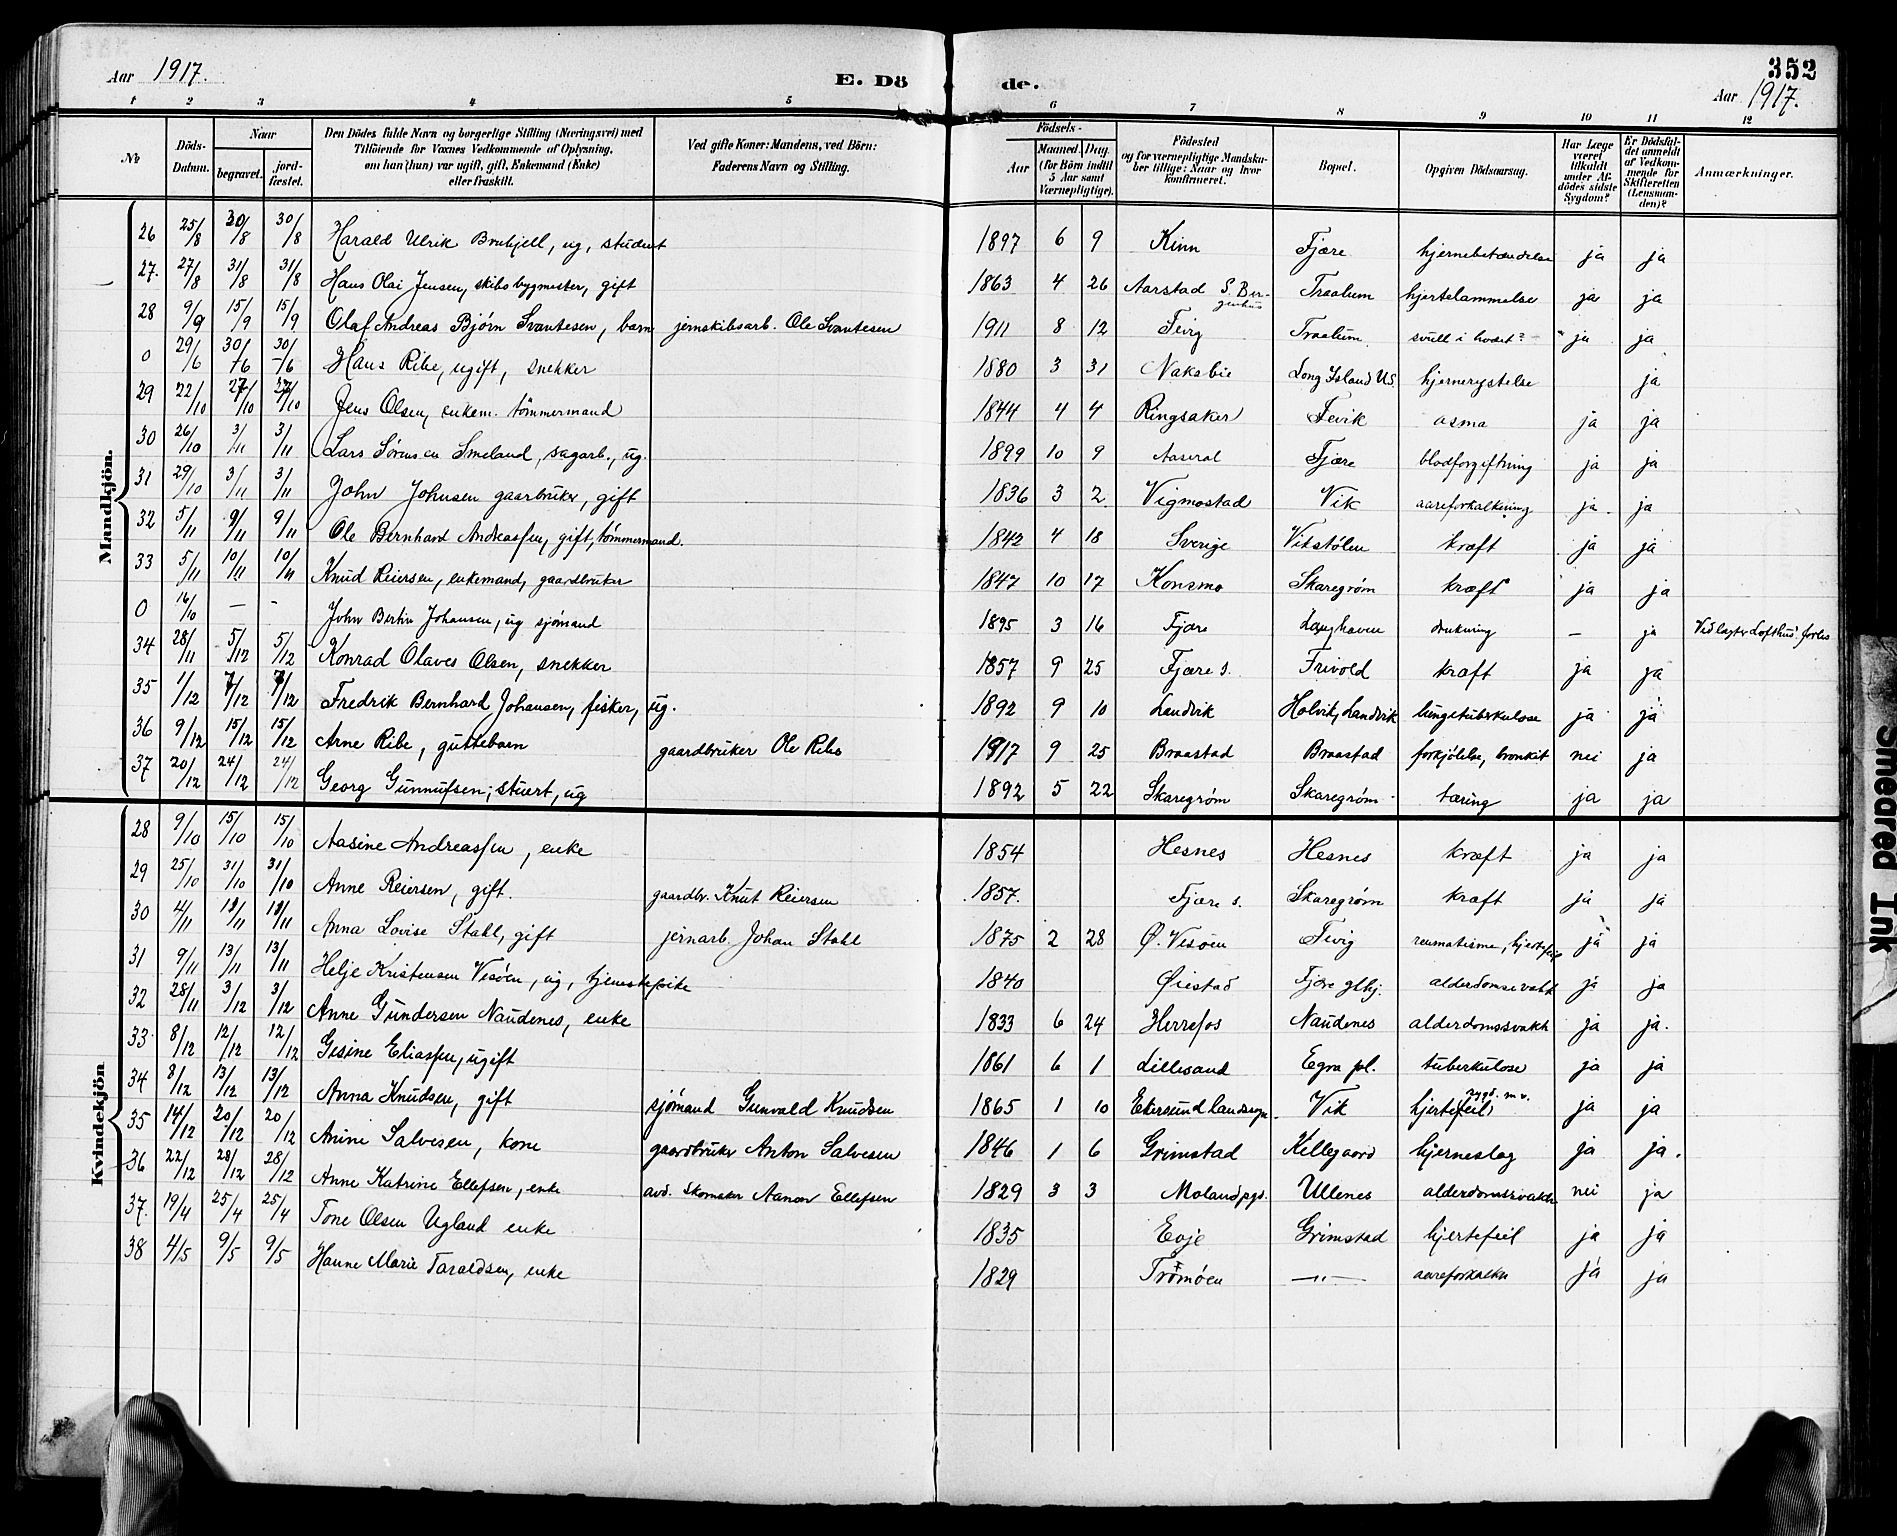 Aar 1917.
E. Dö de.
352
Aar 1917.
1 2 3 4 5 6 7 8 9 10 11 12
No
Döds-Datum.
Naar
begravet.
jord-fæstet.
Den Dödes fulde Navn og borgerlige Stilling (Næringsvei) med Tilföiende for Voxnes Vedkommende af Oplysning, om han (hun) var ugift, gift, Enkemand (Enke) eller fraskilt.
Ved gifte Koner: Mandens, ved Börn: Faderens Navn og Stilling.
Födsels-
Aar
Maaned. Dag. (for Börn indtil 5 Aar samt Værnepligtige).
Födested og for værnepligtige Mandskaber tillige: Naar og hvor konfirmeret.
Bopæl.
Opgiven Dödsaarsag.
Har Læge været tilkaldt under Afdödes sidste Sygdom?
Er Dödsfaldet anmeldt af Vedkommende for Skifteretten (Lensmanden)?
Anmærkninger.
Mandkjön.
26 25/8 30/8 30/8 Harald Ulrik Bruhjell, ug, student 1897 6 9 Kinn Fjære hjernebetændelse ja ja
27. 27/8 31/8 31/8 Hans Olai Jensen, skibsbygmester, gift 1863 4 26 Aarstad S. Bergenhus Traalum hjertelammelse ja ja
28 9/9 15/9 15/9 Olaf Andreas Bjørn Svantesen, barn jernskibsarb. Ole Svantesen 1911 8 12 Fevig Traalum svull i hodet? ja ja
0 29/6 30/6 30/6 Hans Ribe, ugift, snekker 1880 3 31 Nakabie Long Island U.S. hjernerystelse ja
29 22/10 27/10 27/10 Jens Olsen, enkem. tömmermand 1844 4 4 Ringsaker Fevik asma ja ja
30 26/10 3/11 3/11 Lars Sørensen Smeland, sagarb., ug. 1899 10 9 Aaseral Fjære blodforgiftning ja ja
31 29/10 3/11 3/11 John Johnsen gaarbruker, gift 1836 3 2 Vigmostad Vik aareforkalkning ja. ja
32 5/11 9/11 9/11 Ole Bernhard Andreassen, gift, tömmermand. 1842 4 18 Sverige Vikstølen kræft ja ja
33 5/11 10/11 10/11 Knud Reiersen, enkemand, gaardbruker 1847 10 17 Konsmo Skaregrøm kræft ja ja
0 16/10 — - John Bertin Johansen, ug sjömand 1895 3 16 Fjære Langhaven drukning — ja Vidlagt Lofthus forlis
34 28/11 5/12 5/12 Konrad Olaves Olsen, snekker 1857 9 25 Fjære s. Frivold kræft ja ja
35 1/12 7/12 7/12 Fredrik Bernhard Johansen, fisker, ug. 1892 9 10 Landvik Holvik, Landvik lungetuberkulose ja ja
36 9/12 15/12 15/12 Arne Ribe, guttebarn gaardbruker Ole Ribe 1917 9 25 Braastad Braastad forkjölelse, bronkit nei ja
37 20/12 24/12 24/12 Georg Gunnufsen, stuert, ug 1892 5 22 Skaregrøm Skaregrøm tæring ja ja
Kvindekjön
28 9/10 15/10 15/10 Aasine Andreassen, enke 1854 Hesnes Hesnes kræft ja ja
29 25/10 31/10 31/10 Anne Reiersen, gift. gaardbr. Knut Reiersen 1857. Fjære s. Skaregrøm kræft ja ja
30 4/11 13/11 13/11 Anna Lovise Stahl, gift jernarb. Johan Stahl 1875 2 28 Ø. Vesøen Fevig reumatisme, hjertefeil ja ja
31 9/11 13/11 13/11 Helje Kristensen Vesöen, ug, tjenestepike 1840 Øiestad Fjære glkj. alderdomsevakh ja ja
32 28/11 3/12 3/12 Anne Gundersen Naudenes, enke 1833 6 24 Herrefos Naudenes alderdomssvakh ja ja.
33 8/12 12/12 12/12 Gesine Eliassen, ugift 1861 6 1 Lillesand Egra pl. tuberkulose ja ja
34 8/12 13/12 13/12 Anna Knudsen, gift sjömand Gunvald Knudsen 1865 1 10 Ekersund landsogn. Vik hjertefeil sygd. m v. ja ja
35 14/12 20/12 20/12 Anine Salvesen, kone gaardbruker Anton Salvesen 1846 1 6 Grimstad Killegaard hjerneslag ja ja.
36 22/12 28/12 28/12 Anne Katrine Ellefsen, enke avd. skomaker Aanon Ellefsen 1829 3 3 Moland pgs. Ullenes alderdomssvakh nei ja
37. 19/4 25/4 25/4 Tone Olsen Ugland enke 1835 Evje Grimstad hjertefeil ja ja
38 4/5 9/5 9/5 Hanne Marie Taraldsen, enke 1829 Tromøen —"— aareforkalkn ja ja
Smeared Ink